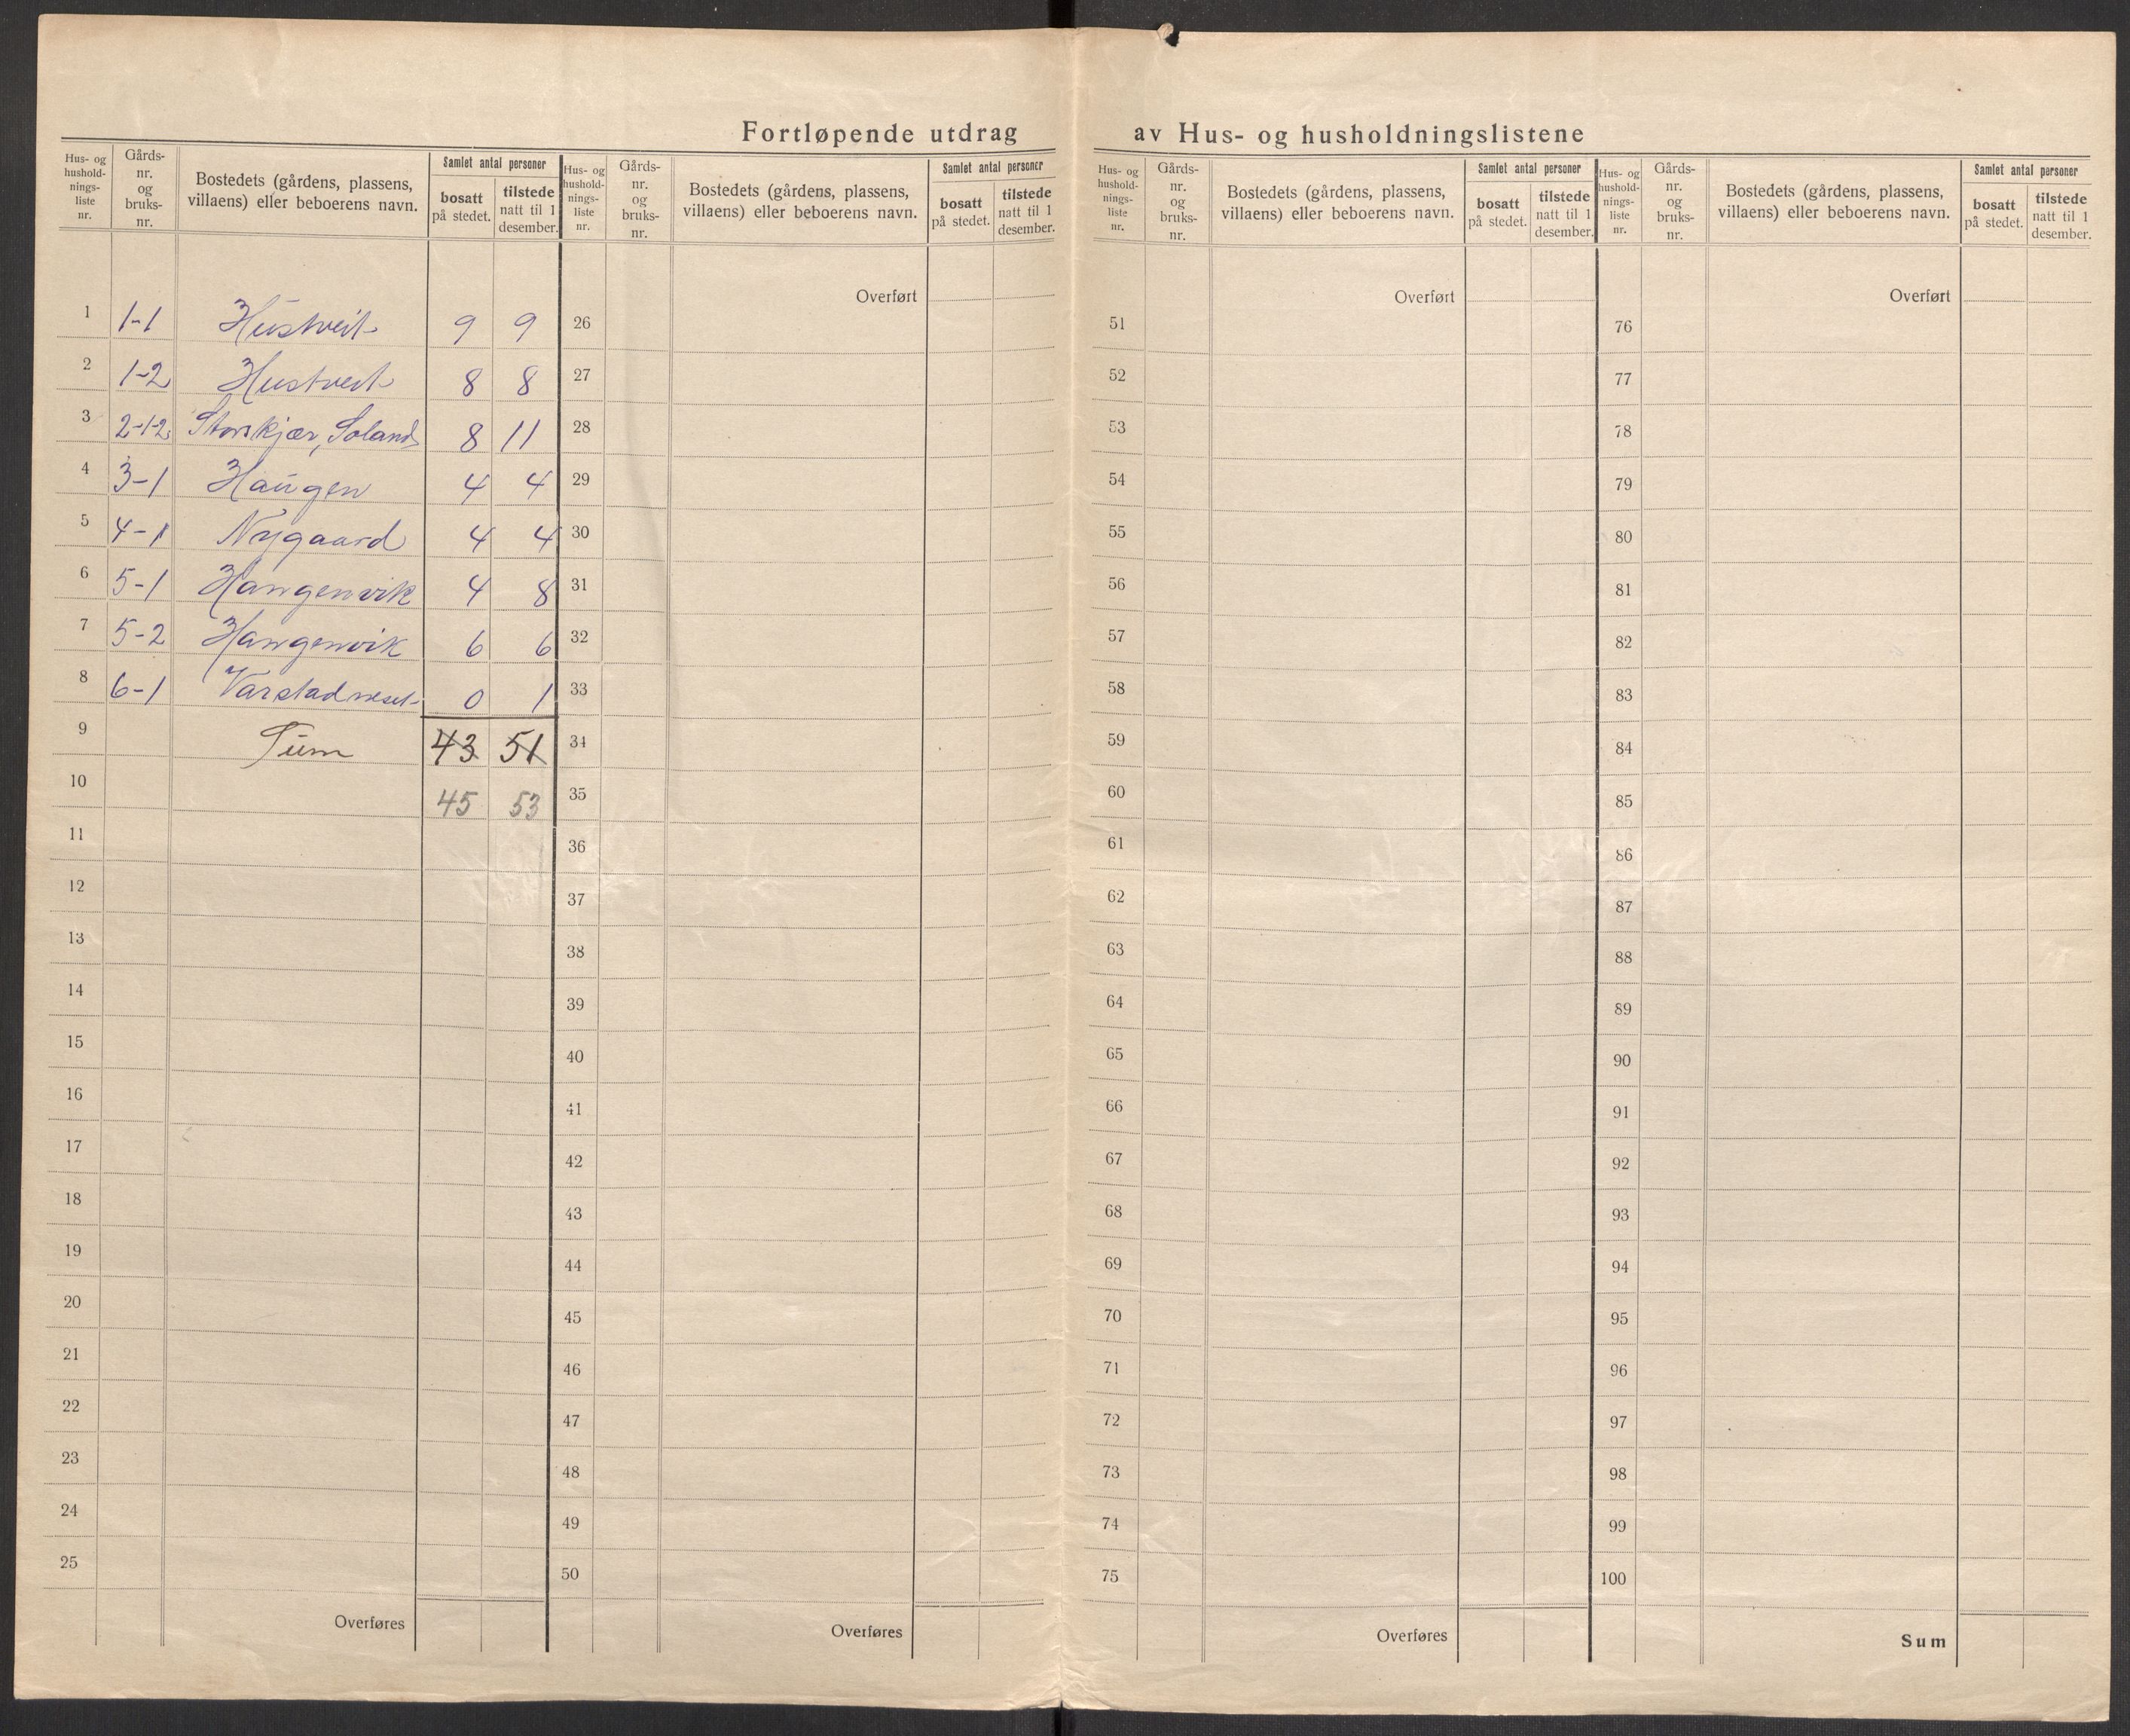 Fortløpende utdrag av Hus- og husholdningslistene
Hus- og hushold- nings- liste nr. Gårds- nr. og bruks- nr. Bostedets (gårdens, plassens, villaens) eller beboerens navn. Samlet antal personer bosatt på stedet. tilstede natt til 1 desember.
1 1-1 Hustveit 9 9
2 1-2 Hustveit 8 8
3 2-1-2 Storskjær, Soland 8 11
4 3-1 Haugen 4 4
5 4-1 Nygaard 4 4
6 5-1 Haugenvik 4 8
7 5-2 Haugenvik 6 6
8 6-1 Varstadneset 0 1
9 Sum 43 51
10 45 53
11
12
13
14
15
16
17
18
19
20
21
22
23
24
25
Overføres
Hus- og hushold- nings- liste nr. Gårds- nr. og bruks- nr. Bostedets (gårdens, plassens, villaens) eller beboerens navn. Samlet antal personer bosatt på stedet. tilstede natt til 1 desember.
Overført
26
27
28
29
30
31
32
33
34
35
36
37
38
39
40
41
42
43
44
45
46
47
48
49
50
Overføres
Hus- og hushold- nings- liste nr. Gårds- nr. og bruks- nr. Bostedets (gårdens, plassens, villaens) eller beboerens navn. Samlet antal personer bosatt på stedet. tilstede natt til 1 desember.
Overført
51
52
53
54
55
56
57
58
59
60
61
62
63
64
65
66
67
68
69
70
71
72
73
74
75
Overføres
Hus- og hushold- nings- liste nr. Gårds- nr. og bruks- nr. Bostedets (gårdens, plassens, villaens) eller beboerens navn. Samlet antal personer bosatt på stedet. tilstede natt til 1 desember.
Overført
76
77
78
79
80
81
82
83
84
85
86
87
88
89
90
91
92
93
94
95
96
97
98
99
100
Sum